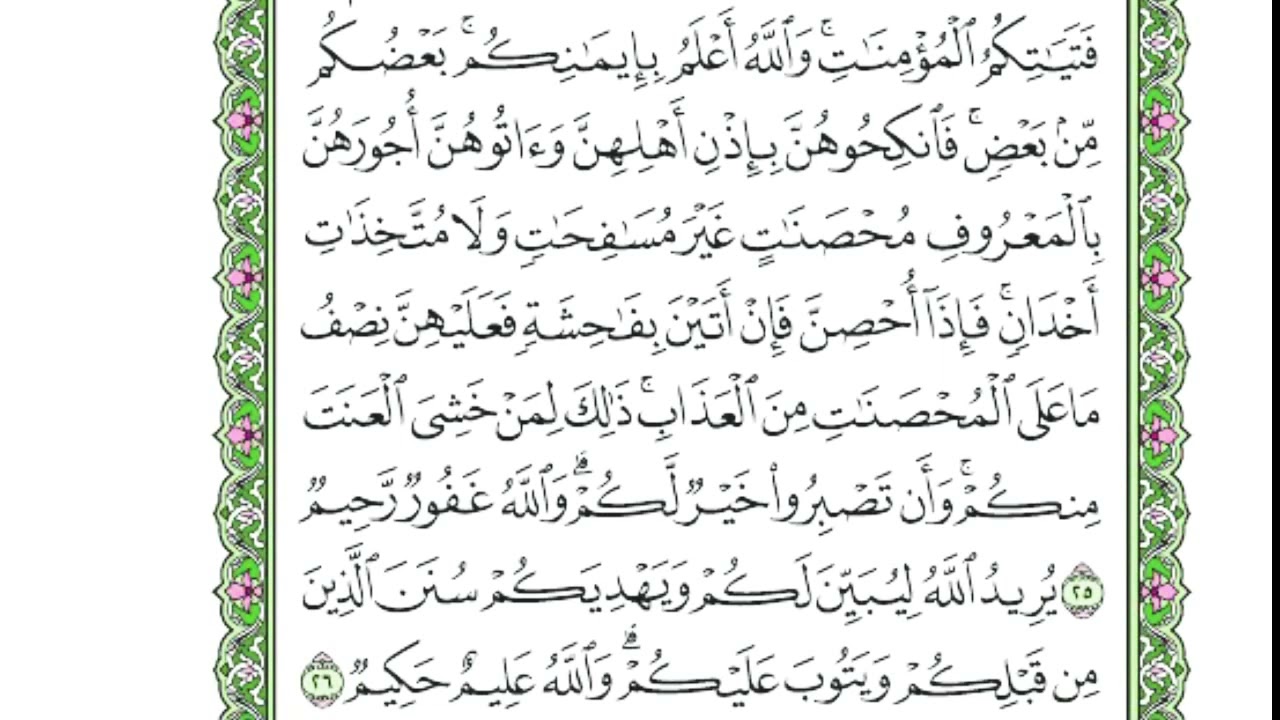 فَتَيَٰتِكُمُ ٱلْمُؤْمِنَٰتِ ۚ وَٱللَّهُ أَعْلَمُ بِإِيمَٰنِكُم ۚ بَعْضُكُم
مِّنۢ بَعْضٍ ۚ فَٱنكِحُوهُنَّ بِإِذْنِ أَهْلِهِنَّ وَءَاتُوهُنَّ أُجُورَهُنَّ
بِٱلْمَعْرُوفِ مُحْصَنَٰتٍ غَيْرَ مُسَٰفِحَٰتٍ وَلَا مُتَّخِذَٰتِ
أَخْدَانٍ ۚ فَإِذَآ أُحْصِنَّ فَإِنْ أَتَيْنَ بِفَٰحِشَةٍ فَعَلَيْهِنَّ نِصْفُ
مَا عَلَى ٱلْمُحْصَنَٰتِ مِنَ ٱلْعَذَابِ ۚ ذَٰلِكَ لِمَنْ خَشِىَ ٱلْعَنَتَ
مِنكُمْ ۚ وَأَن تَصْبِرُوا۟ خَيْرٌ لَّكُمْ ۗ وَٱللَّهُ غَفُورٌ رَّحِيمٌ
٢٥ يُرِيدُ ٱللَّهُ لِيُبَيِّنَ لَكُمْ وَيَهْدِيَكُمْ سُنَنَ ٱلَّذِينَ
مِن قَبْلِكُمْ وَيَتُوبَ عَلَيْكُمْ ۗ وَٱللَّهُ عَلِيمٌ حَكِيمٌ ٢٦